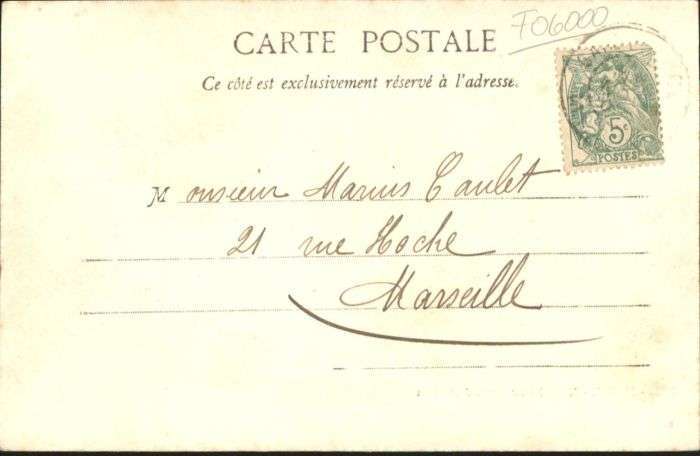 F06000
CARTE POSTALE
Ce côté est exclusivement réservé à l'adresse.
5c
POSTES
Monsieur Marius Caulet
21 rue Hoche
Marseille